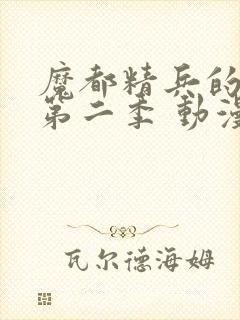 魔都精兵的
第二季 動漫
瓦尔德海姆